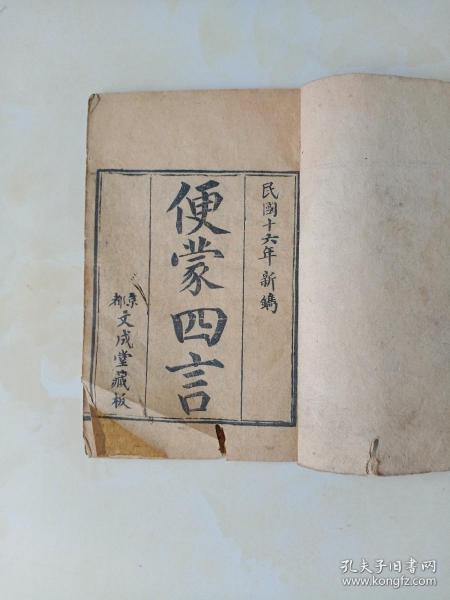 民國十六年新鐫
便蒙四言
京都文成堂藏板
孔夫子旧书网
www.kongfz.com